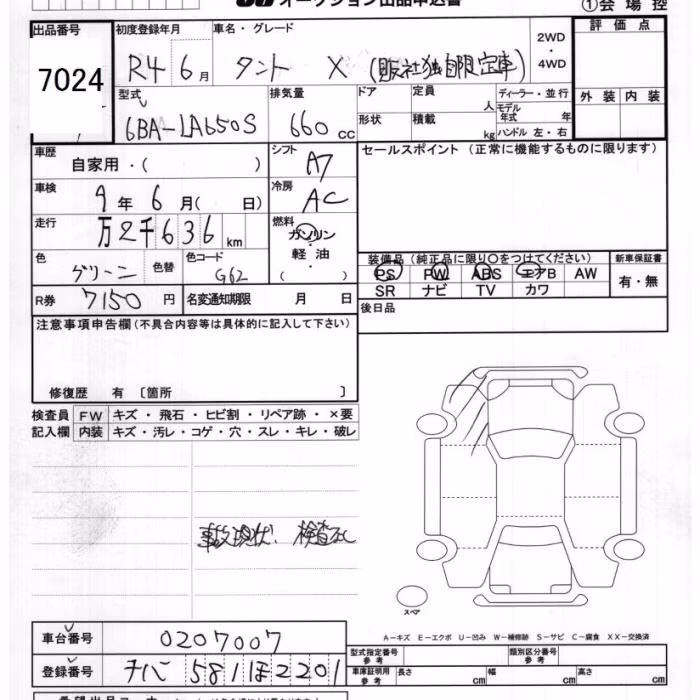 オークション出品申込書 ①会場控
出品番号 初度登録年月 車名・グレード 2WD・4WD 評価点
7024 R4 6月 タント X (販社独自限定車)
型式 排気量 ドア 定員 人 ディーラー・並行 外装 内装
6BA-LA650S 660cc 形状 積載 kg モデル年式 年 ハンドル 左・右
車歴 自家用・( ) シフト A7 セールスポイント (正常に機能するものに限ります)
車検 9年6月( 日) 冷房 AC
走行 万2千636km 燃料 ガソリン・軽油 ( ・ )
色 グリーン 色替 色コード G62 装備品 (純正品に限り○をつけてください) 新車保証書
PS PW ABS エアB AW 有・無
SR ナビ TV カワ
R券 7150円 名変通知期限 月 日 後日品
注意事項申告欄 (不具合内容等は具体的に記入して下さい)
修復歴 有 〔箇所 〕
検査員 FW キズ・飛石・ヒビ割・リペア跡・×要
記入欄 内装 キズ・汚レ・コゲ・穴・スレ・キレ・破レ
事故現状. 検査なし
スペア
A-キズ E-エクボ U-凹み W-補修跡 S-サビ C-腐食 XX-交換済
車台番号 0207007 型式指定番号 参考 類別区分番号 参考
登録番号 チバ 581 ほ 2201 車庫証明用 参考 長さ cm 幅 cm 高さ cm